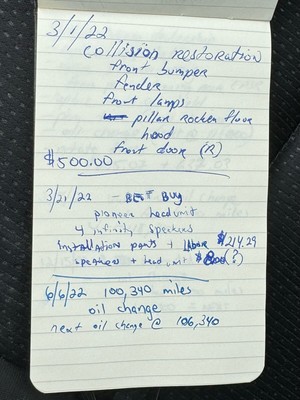 3/1/22
collision restoration
front bumper
fender
front lamps
pillar rocker floor
hood
front door (R)
$500.00
3/21/22 - BEST BUY
pioneer headunit
4 infinity speckers
installation parts + labor $214.29
speakers + head unit $800(?)
6/6/22 100,340 miles
oil change
next oil change @ 106,340